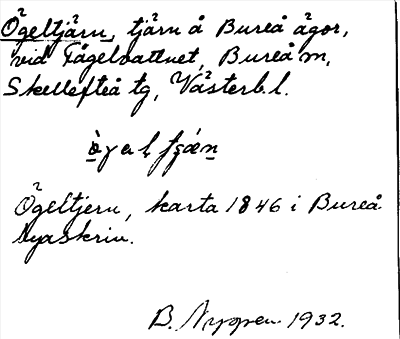 Ögeltjärn, tjärn å Bureå ägor,
vid Fågelvattnet, Bureå m,
Skellefteå tg, Västerb. l.
Ögeltjern, karta 1846 i Bureå
byaskrin.
B. Nygren 1932.